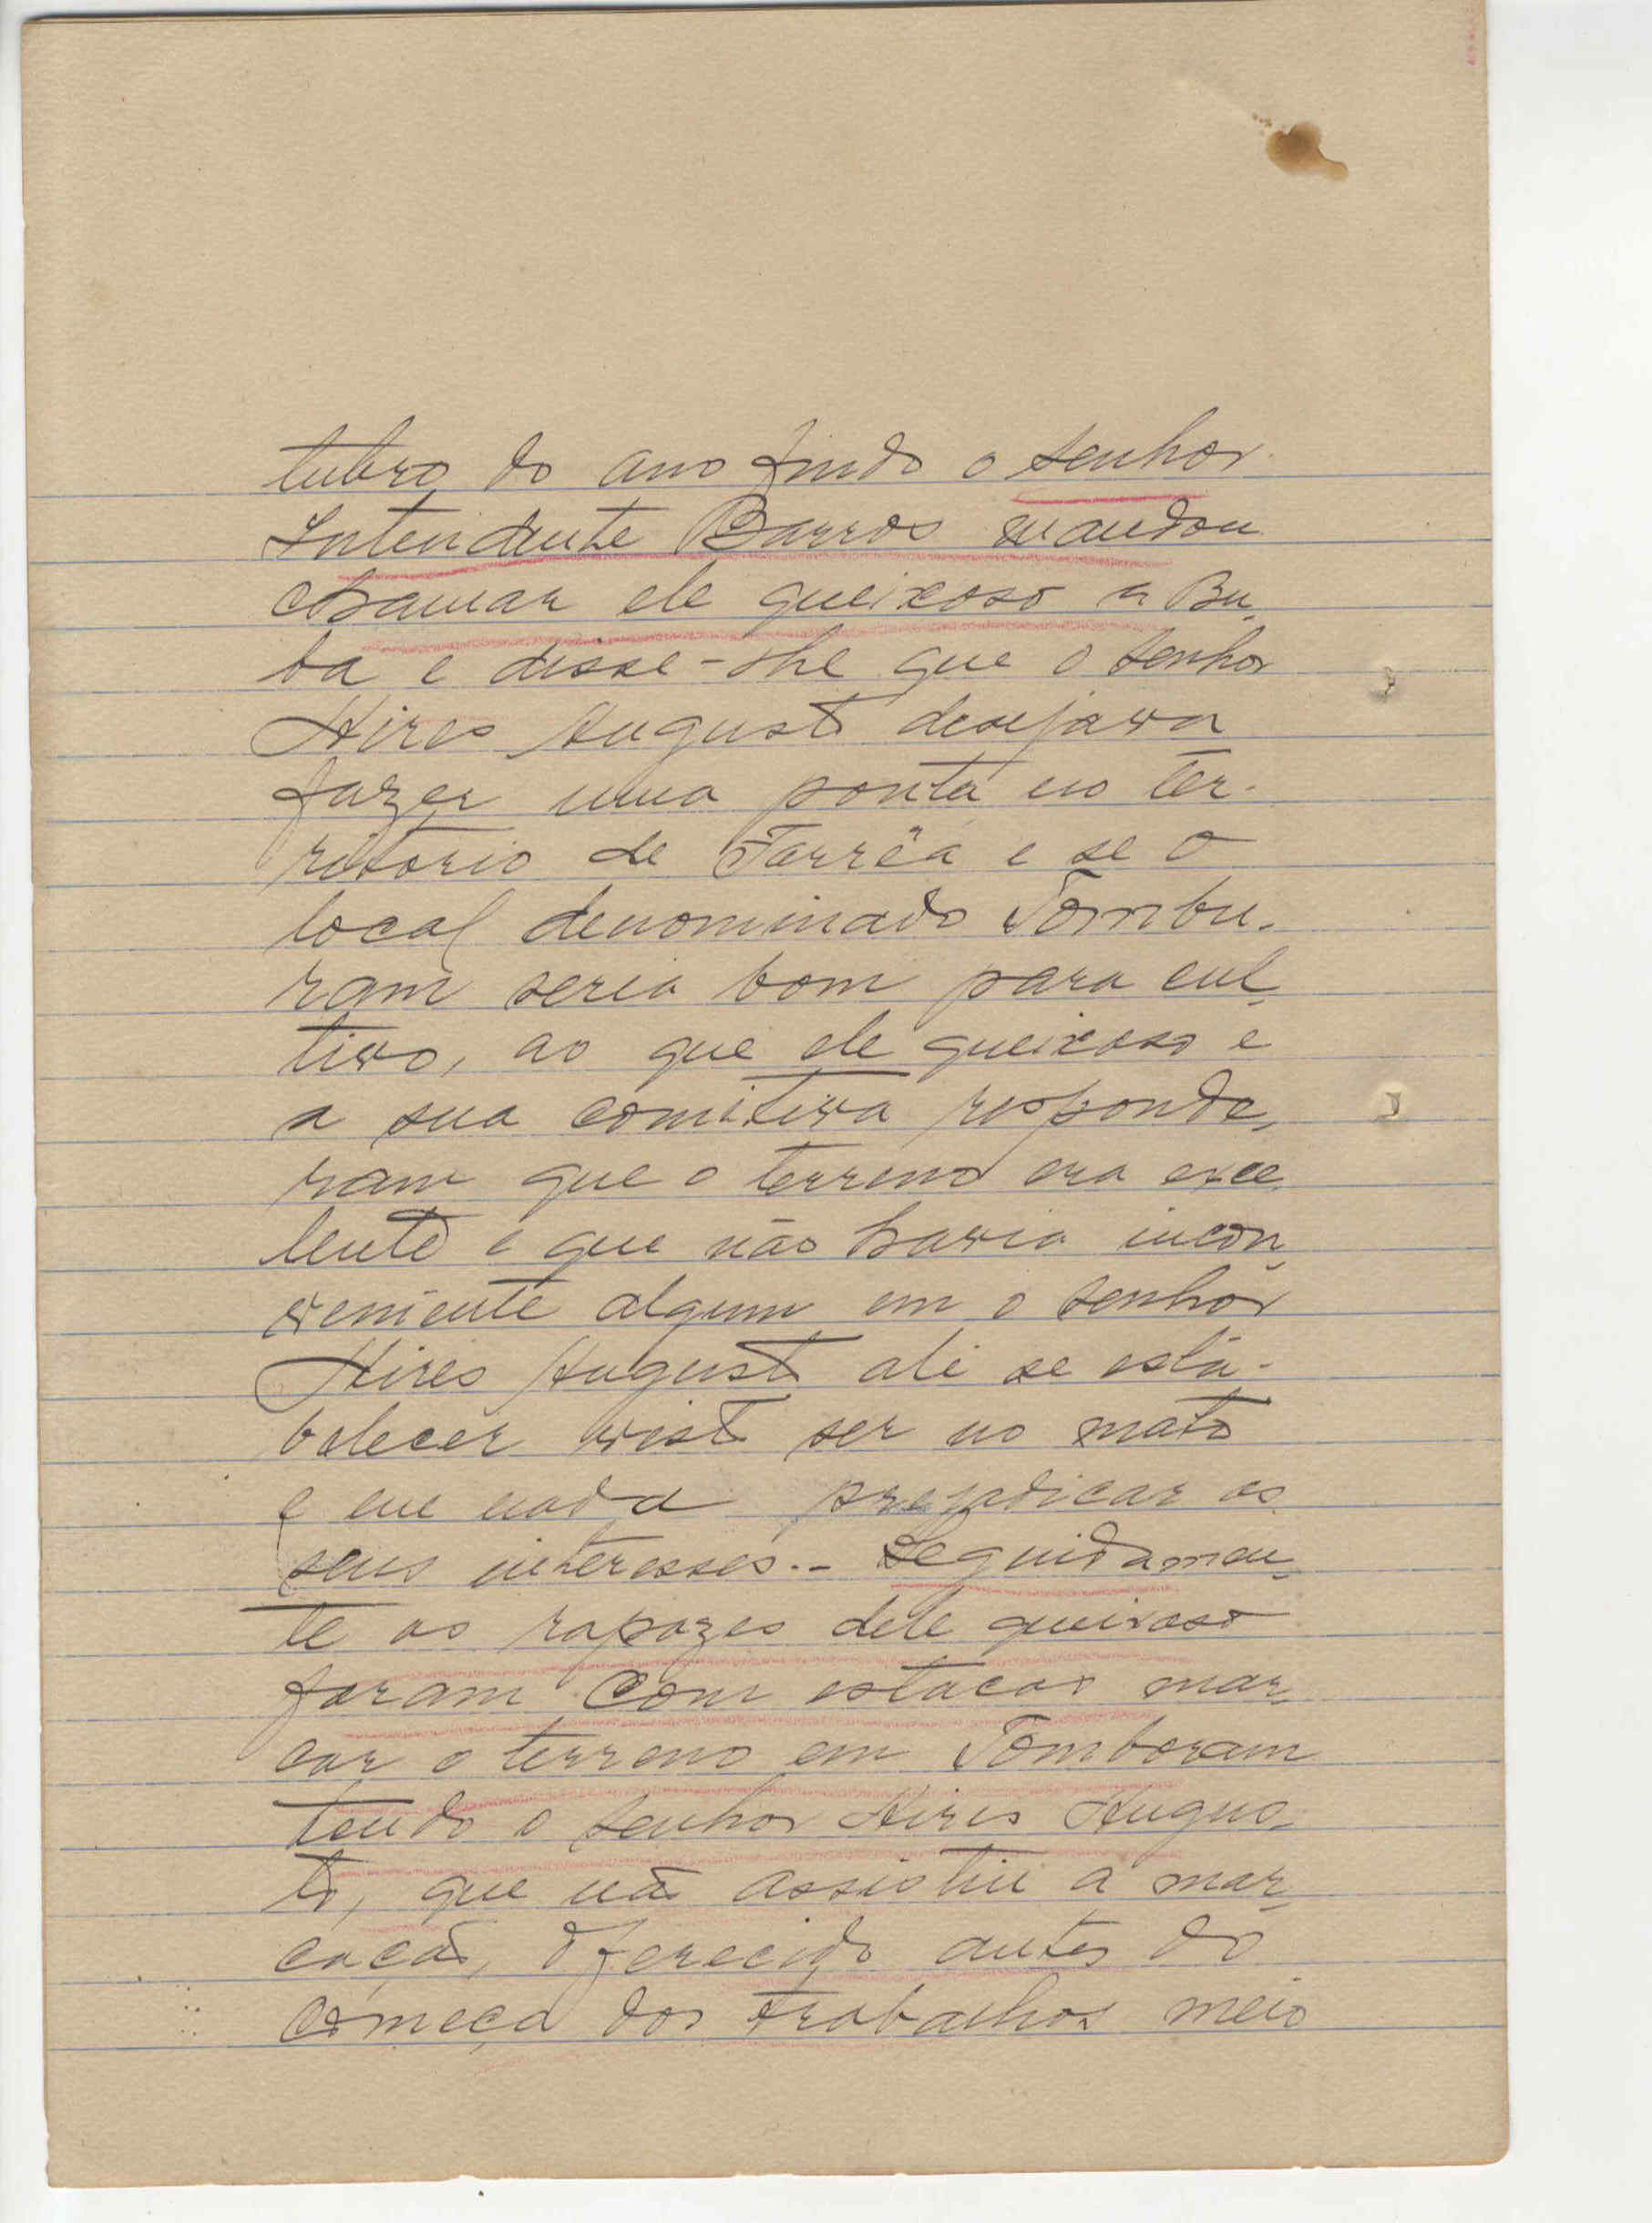 tubro do ano findo o senhor
Intendente Barros mandou
chamar ele queixoso a Bu-
ba e disse-lhe que o senhor
Aires Augusto desejava
fazer uma ponta no ter-
ritório de Farrêa e se o
local denominado Tombu-
ram seria bom para cul-
tivo, ao que ele queixoso e
a sua comitiva responde-
ram que o terreno era exce-
lente e que não havia incon-
veniente algum em o senhor
Aires Augusto ali se esta-
balecer visto ser no mato
e em nada prejudicar os
seus interesses.- Seguidamen-
te os rapazes dele queixoso
foram com estacas mar-
car o terreno em Tomboram
tendo o senhor Aires Augus-
to, que não assistiu à mar-
cação, oferecido antes do
começo dos trabalhos meio